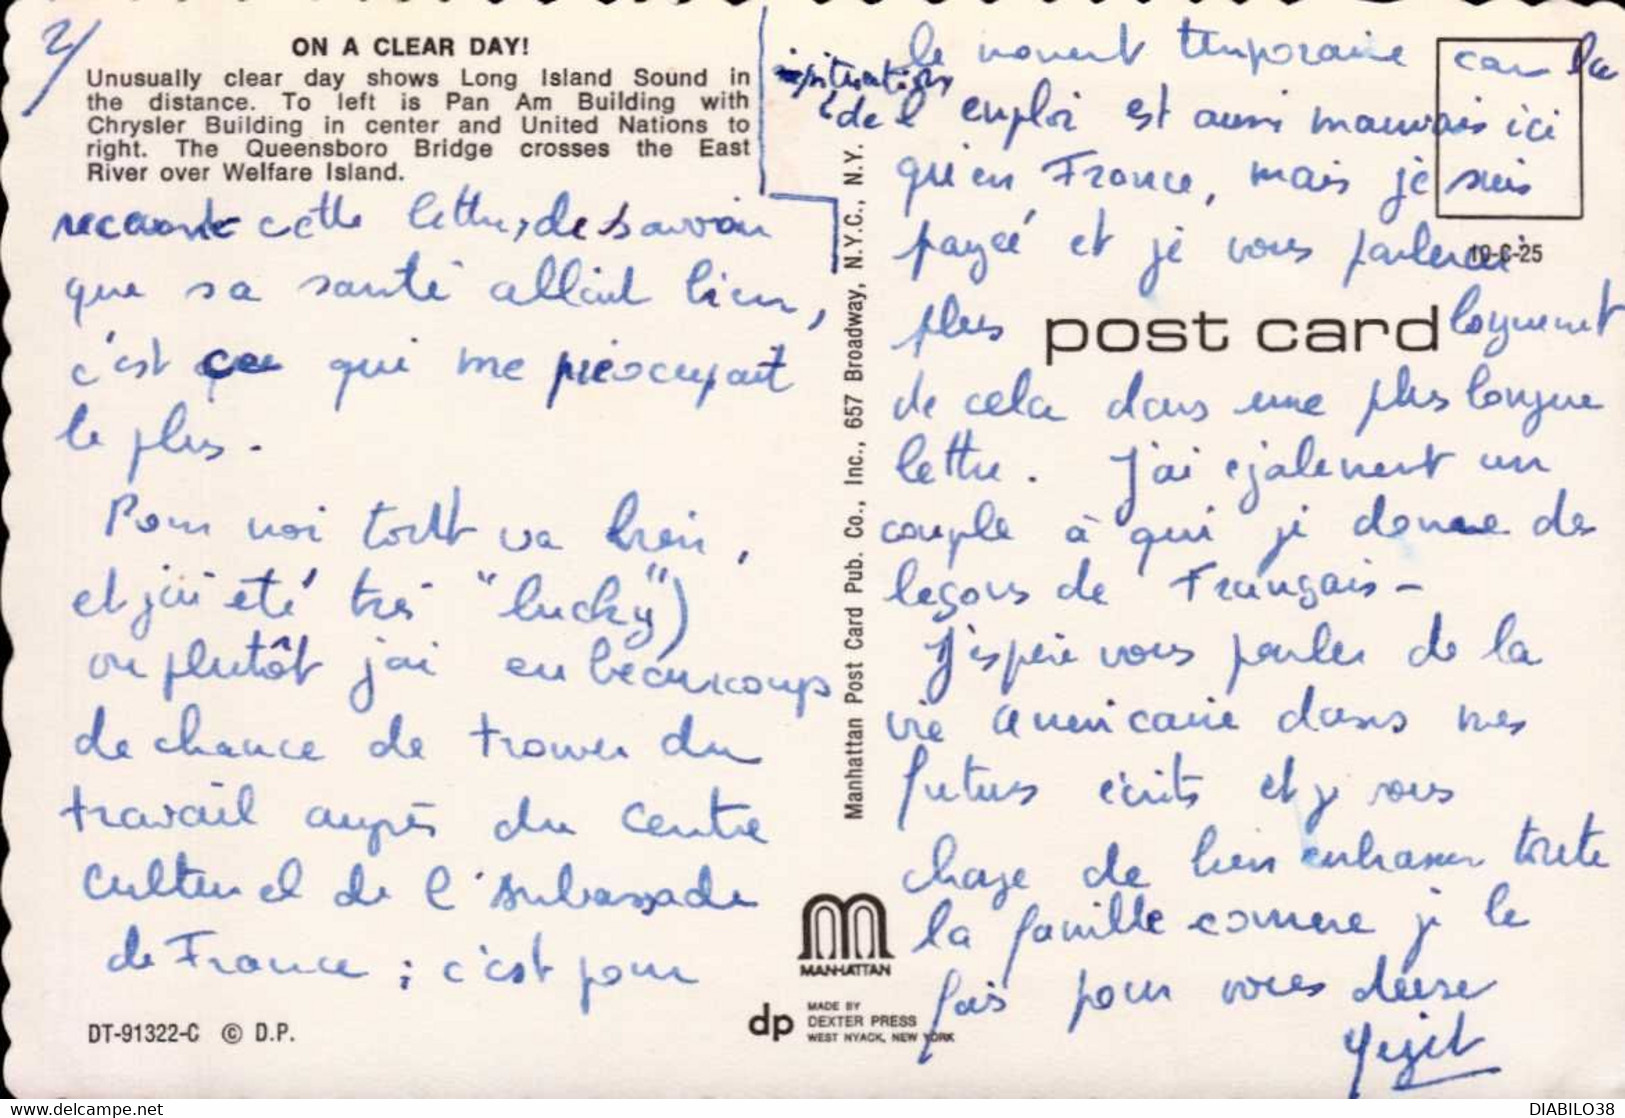 2/
ON A CLEAR DAY!
Unusually clear day shows Long Island Sound in
the distance. To left is Pan Am Building with
Chrysler Building in center and United Nations to
right. The Queensboro Bridge crosses the East
River over Welfare Island.
recevant cette lettre, de savoir
que sa santé allait bien,
c'est ce qui me préocupait
le plus.
Pour moi tout va bien,
et j'ai été très "lucky")
ou plutôt j'ai eu beaucoups
de chance de trouver du
travail auprès du Centre
Culturel de l'Ambassade
de France ; c'est pour
DT-91322-C © D.P.
Manhattan Post Card Pub. Co., Inc., 657 Broadway, N.Y.C., N.Y.
MANHATTAN
dp MADE BY
DEXTER PRESS
WEST NYACK, NEW YORK
19-C-25
post card
le moment temporaire car la
situation
de l'emploi est aussi mauvais ici
qu'en France, mais je suis
payée et je vous parlerai
plus longuement
de cela dans une plus longue
lettre. J'ai également un
couple à qui je donne des
leçons de Français -
J'espère vous parler de la
vie américaine dans mes
futurs écrits et je vous
charge de bien embrasser toute
la famille comme je le
fais pour vous deux